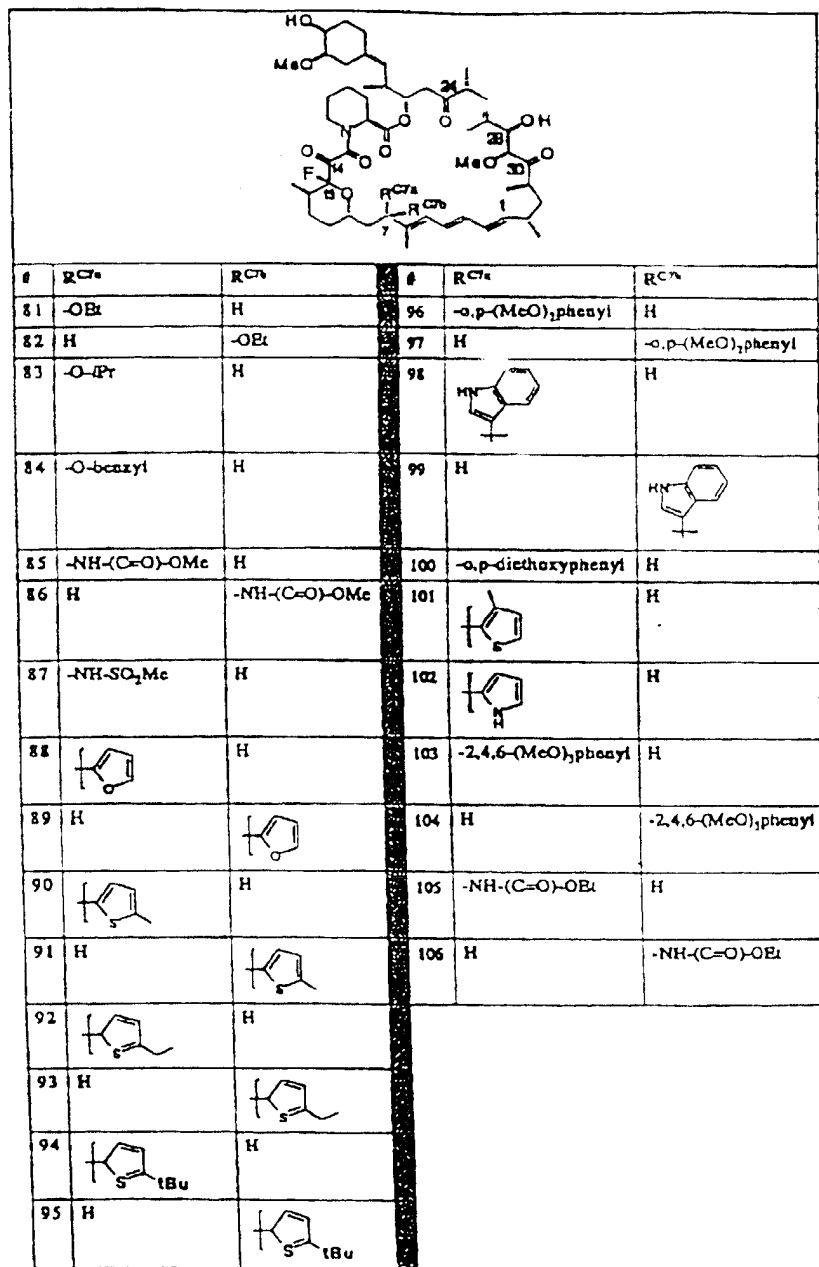 HO
MeO
24
O
O
O
N
O
O
14
O
F
13
O
R^C7a
R^C7b
7
1
28
OH
MeO
30
O
# R^C7a R^C7b
81 -OEt H
82 H -OEt
83 -O-iPr H
84 -O-benzyl H
85 -NH-(C=O)-OMe H
86 H -NH-(C=O)-OMe
87 -NH-SO₂Me H
88 O H
89 H O
90 S H
91 H S
92 S H
93 H S
94 S tBu H
95 H S tBu
# R^C7a R^C7b
96 -o,p-(MeO)₂phenyl H
97 H -o,p-(MeO)₂phenyl
98 HN H
99 H HN
100 -o,p-diethoxyphenyl H
101 S H
102 N H H
103 -2,4,6-(MeO)₃phenyl H
104 H -2,4,6-(MeO)₃phenyl
105 -NH-(C=O)-OEt H
106 H -NH-(C=O)-OEt